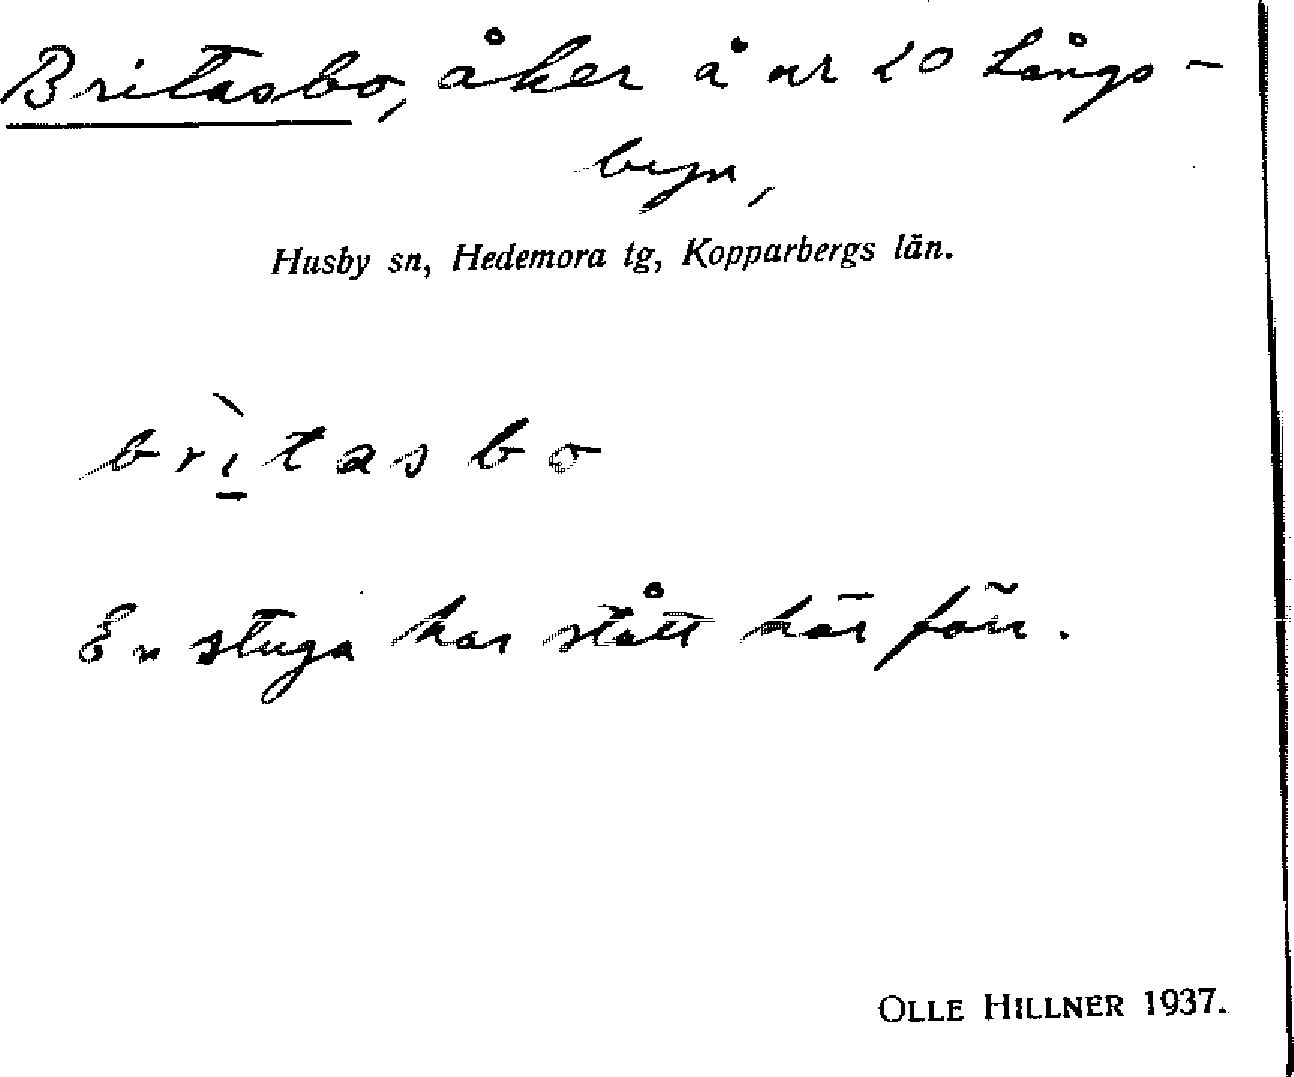 Britasbo, åker å nr 20 Långs-
byn,
Husby sn, Hedemora tg, Kopparbergs län.
brìtasbo
En stuga har stått här förr.
OLLE HILLNER 1937.